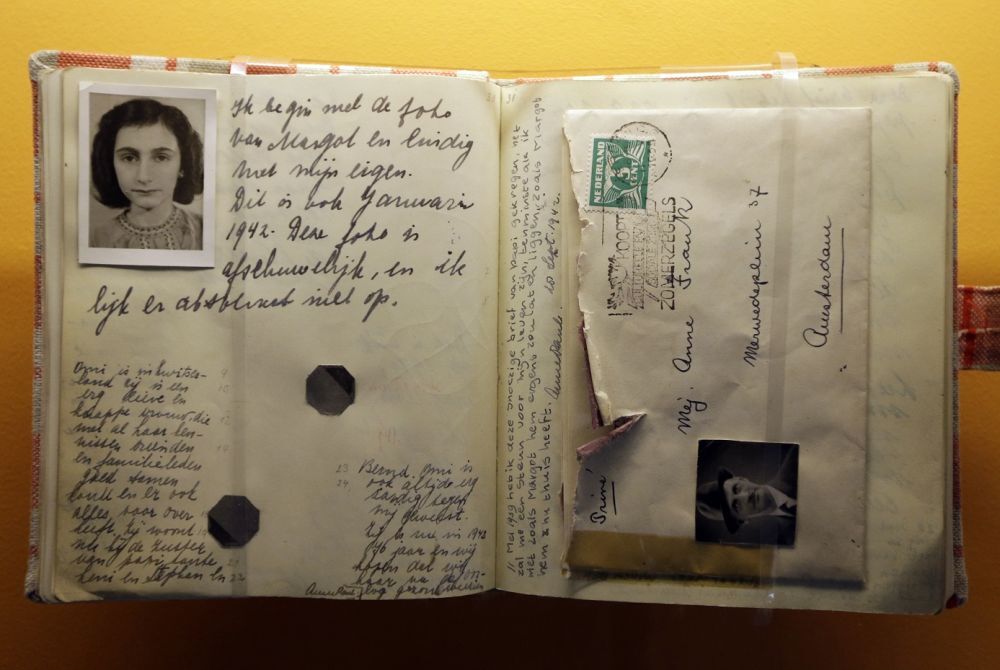 Ik begin met de foto
van Margot en eindig
met mijn eigen.
Dit is ook Januari
1942. Deze foto is
afschuwelijk, en ik
lijk er absoluut niet op.
Omi is in Zwitser-
land zij is een
erg lieve en
knappe vrouw, die
met al haar ken-
nissen vrienden
en familieleden
goed samen
en er ook
alles voor over
heeft, zij woont
nu bij de zuster
van papi tante
Leni en Stephan en
23 Bernd, Omi is
24 ook altijd erg
aardig tegen
mij geweest.
Zij is nu in 1942
76 jaar en wij
hopen dat wij
haar na de oor-
log gezond
31
11 Mei 1939 heb ik deze snoezige brief van papi gekregen, het
zal me een steun voor mijn leven zijn, tenminste als ik
niet zoals Margot hem ergens zou laten liggen, zoals Margot
hem thuis heeft. Anne Frank. 10 Sept. 1942.
NEDERLAND
5
CENT
KOOPT
ZOMERZEGELS
Mej. Anne Frank
Merwedeplein 37
Amsterdam
Privé!